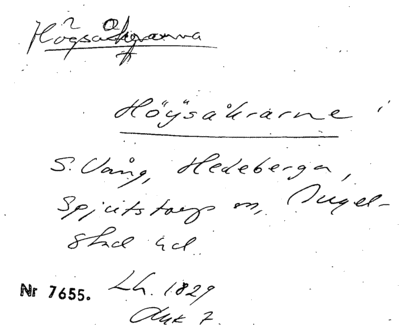 Högsåkrarna
Höÿsåkrarne
S. Vång, Hedeberga,
Spjutstorp sn, Ingel-
stad hd
Nr 7655. Lh. 1829
Akt 7.